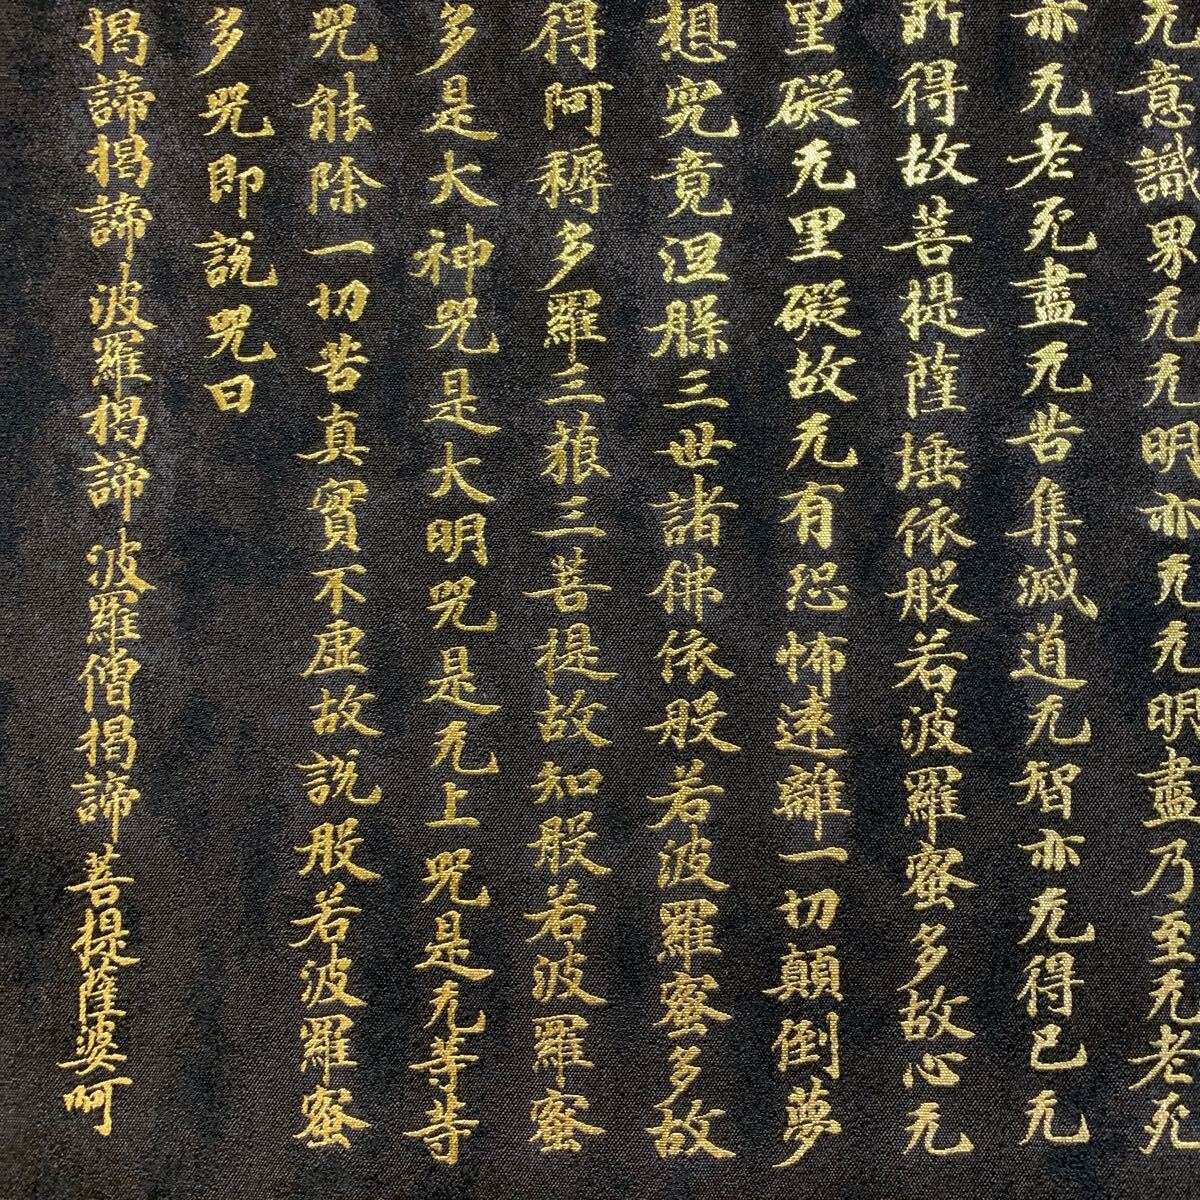 无意識界无无明亦无无明盡乃至无老死
亦无老死盡无苦集滅道无智亦无得已无
所得故菩提薩埵依般若波羅蜜多故心无
罣礙无罣礙故无有恐怖遠離一切顛倒夢
想究竟涅槃三世諸佛依般若波羅蜜多故
得阿耨多羅三藐三菩提故知般若波羅蜜
多是大神咒是大明咒是无上咒是无等等
咒能除一切苦真實不虛故說般若波羅蜜
多咒即說咒曰
揭諦揭諦波羅揭諦波羅僧揭諦菩提薩婆呵